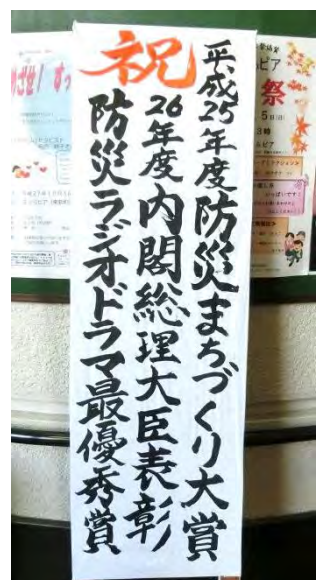 祝
平成25年度防災まちづくり大賞
26年度内閣総理大臣表彰
防災ラジオドラマ最優秀賞
ピア
祭
5日
3時